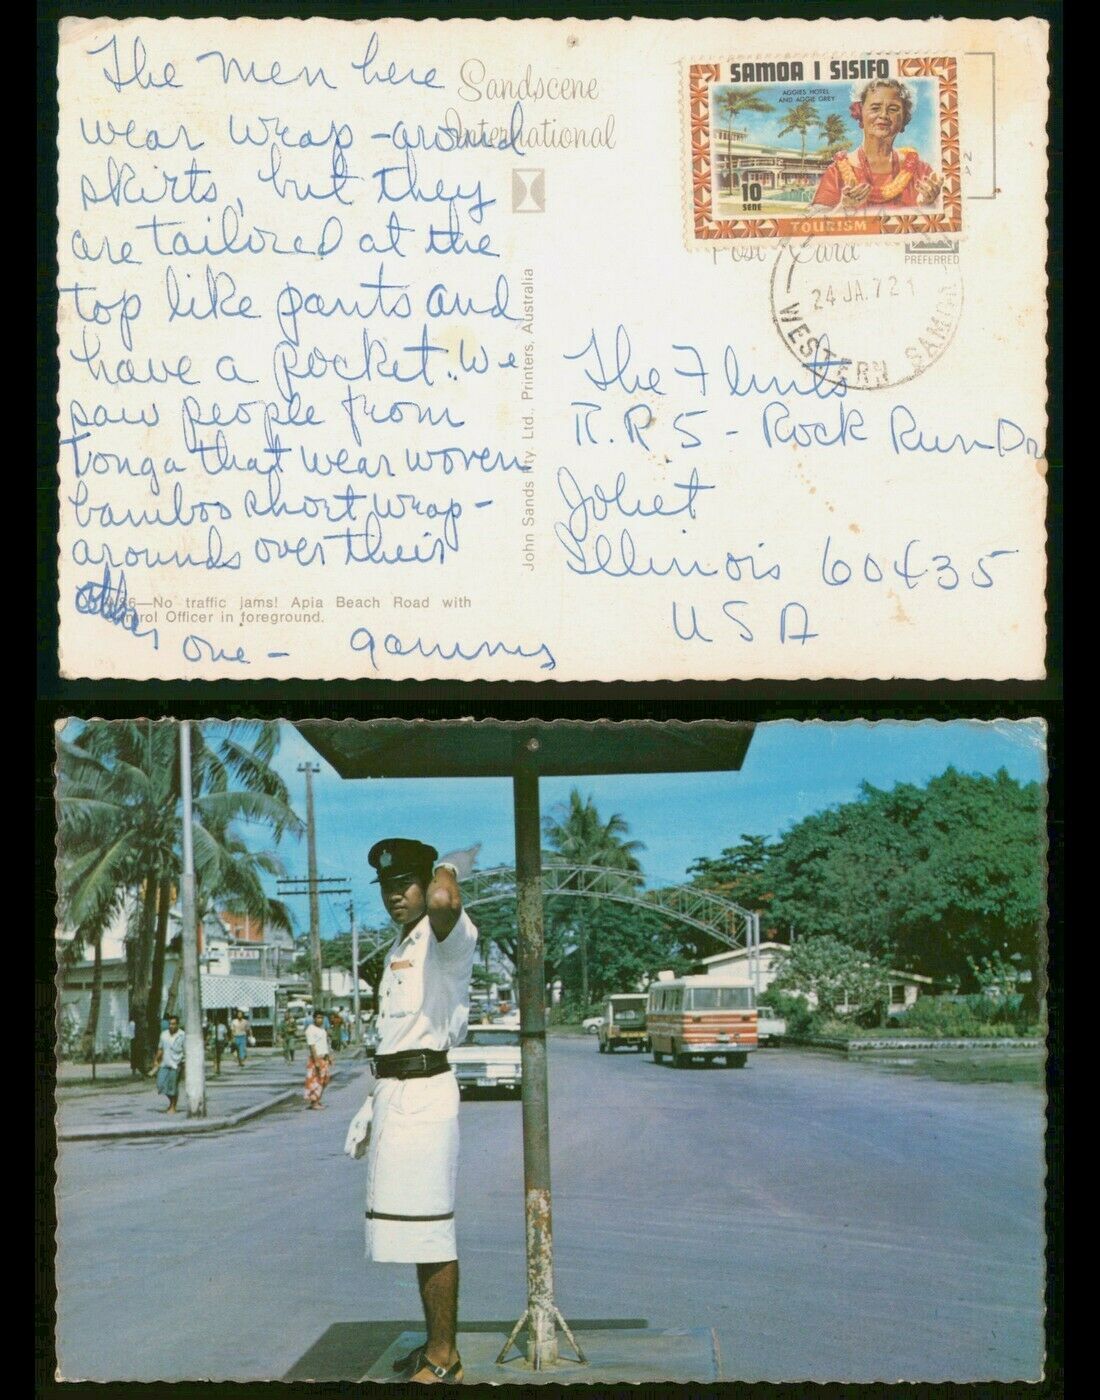 The men here
wear wrap-around
skirts, but they
are tailored at the
top like pants and
have a pocket. We
saw people from
Tonga that wear woven
bamboo short wrap-
arounds over their
other
one - Gammy
Sandscene
International
6—No traffic jams! Apia Beach Road with
trol Officer in foreground.
John Sands Pty. Ltd., Printers, Australia
SAMOA I SISIFO
AGGIES HOTEL
AND AGGIE GREY
10
SENE
TOURISM
Post Card
PREFERRED
24 JA. 72
WESTERN SAMOA
The Flints
R.R 5 - Rock Run Dr
Joliet
Illinois 60435
USA